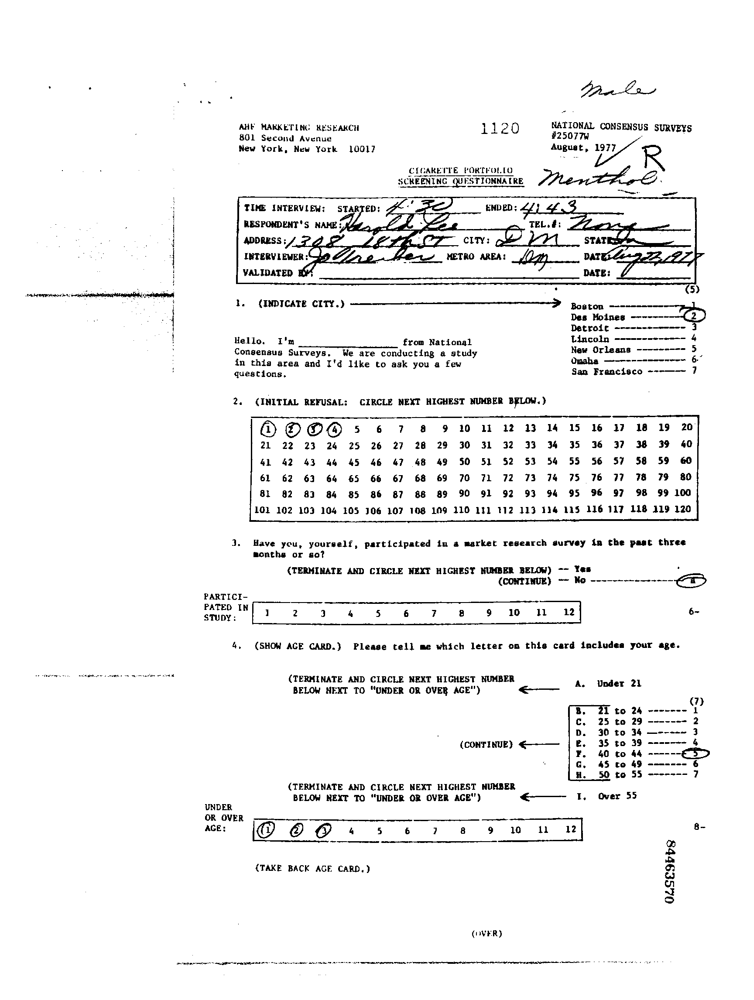 Male
AHF MARKETING RESEARCH
801 Second Avenue
New York, New York 10017
1120
NATIONAL CONSENSUS SURVEYS
#25077W
August, 1977
R
CIGARETTE PORTFOLIO
SCREENING QUESTIONNAIRE
Menthol
TIME INTERVIEW: STARTED: 4:30 ENDED: 4:43
RESPONDENT'S NAME: Harold Lee TEL.#: None
ADDRESS: 1308 18th ST CITY: DM STATE
INTERVIEWER: METRO AREA: Dm DATE Aug 23, 1977
VALIDATED BY: DATE:
(5)
1. (INDICATE CITY.)
Boston ---------- 1
Des Moines ------ 2
Detroit --------- 3
Lincoln --------- 4
New Orleans ----- 5
Omaha ----------- 6
San Francisco --- 7
Hello. I'm ____________ from National
Consensus Surveys. We are conducting a study
in this area and I'd like to ask you a few
questions.
2. (INITIAL REFUSAL: CIRCLE NEXT HIGHEST NUMBER BELOW.)
1 2 3 4 5 6 7 8 9 10 11 12 13 14 15 16 17 18 19 20
21 22 23 24 25 26 27 28 29 30 31 32 33 34 35 36 37 38 39 40
41 42 43 44 45 46 47 48 49 50 51 52 53 54 55 56 57 58 59 60
61 62 63 64 65 66 67 68 69 70 71 72 73 74 75 76 77 78 79 80
81 82 83 84 85 86 87 88 89 90 91 92 93 94 95 96 97 98 99 100
101 102 103 104 105 106 107 108 109 110 111 112 113 114 115 116 117 118 119 120
3. Have you, yourself, participated in a market research survey in the past three
months or so?
(TERMINATE AND CIRCLE NEXT HIGHEST NUMBER BELOW) -- Yes
(CONTINUE) -- No ----------
PARTICI-
PATED IN
STUDY: 1 2 3 4 5 6 7 8 9 10 11 12 6-
4. (SHOW AGE CARD.) Please tell me which letter on this card includes your age.
(TERMINATE AND CIRCLE NEXT HIGHEST NUMBER
BELOW NEXT TO "UNDER OR OVER AGE") A. Under 21
(7)
B. 21 to 24 ------- 1
C. 25 to 29 ------- 2
D. 30 to 34 ------- 3
(CONTINUE) E. 35 to 39 ------- 4
F. 40 to 44 ------- 5
G. 45 to 49 ------- 6
H. 50 to 55 ------- 7
(TERMINATE AND CIRCLE NEXT HIGHEST NUMBER
BELOW NEXT TO "UNDER OR OVER AGE") I. Over 55
UNDER
OR OVER
AGE: 1 2 3 4 5 6 7 8 9 10 11 12 8-
(TAKE BACK AGE CARD.)
84463570
(OVER)